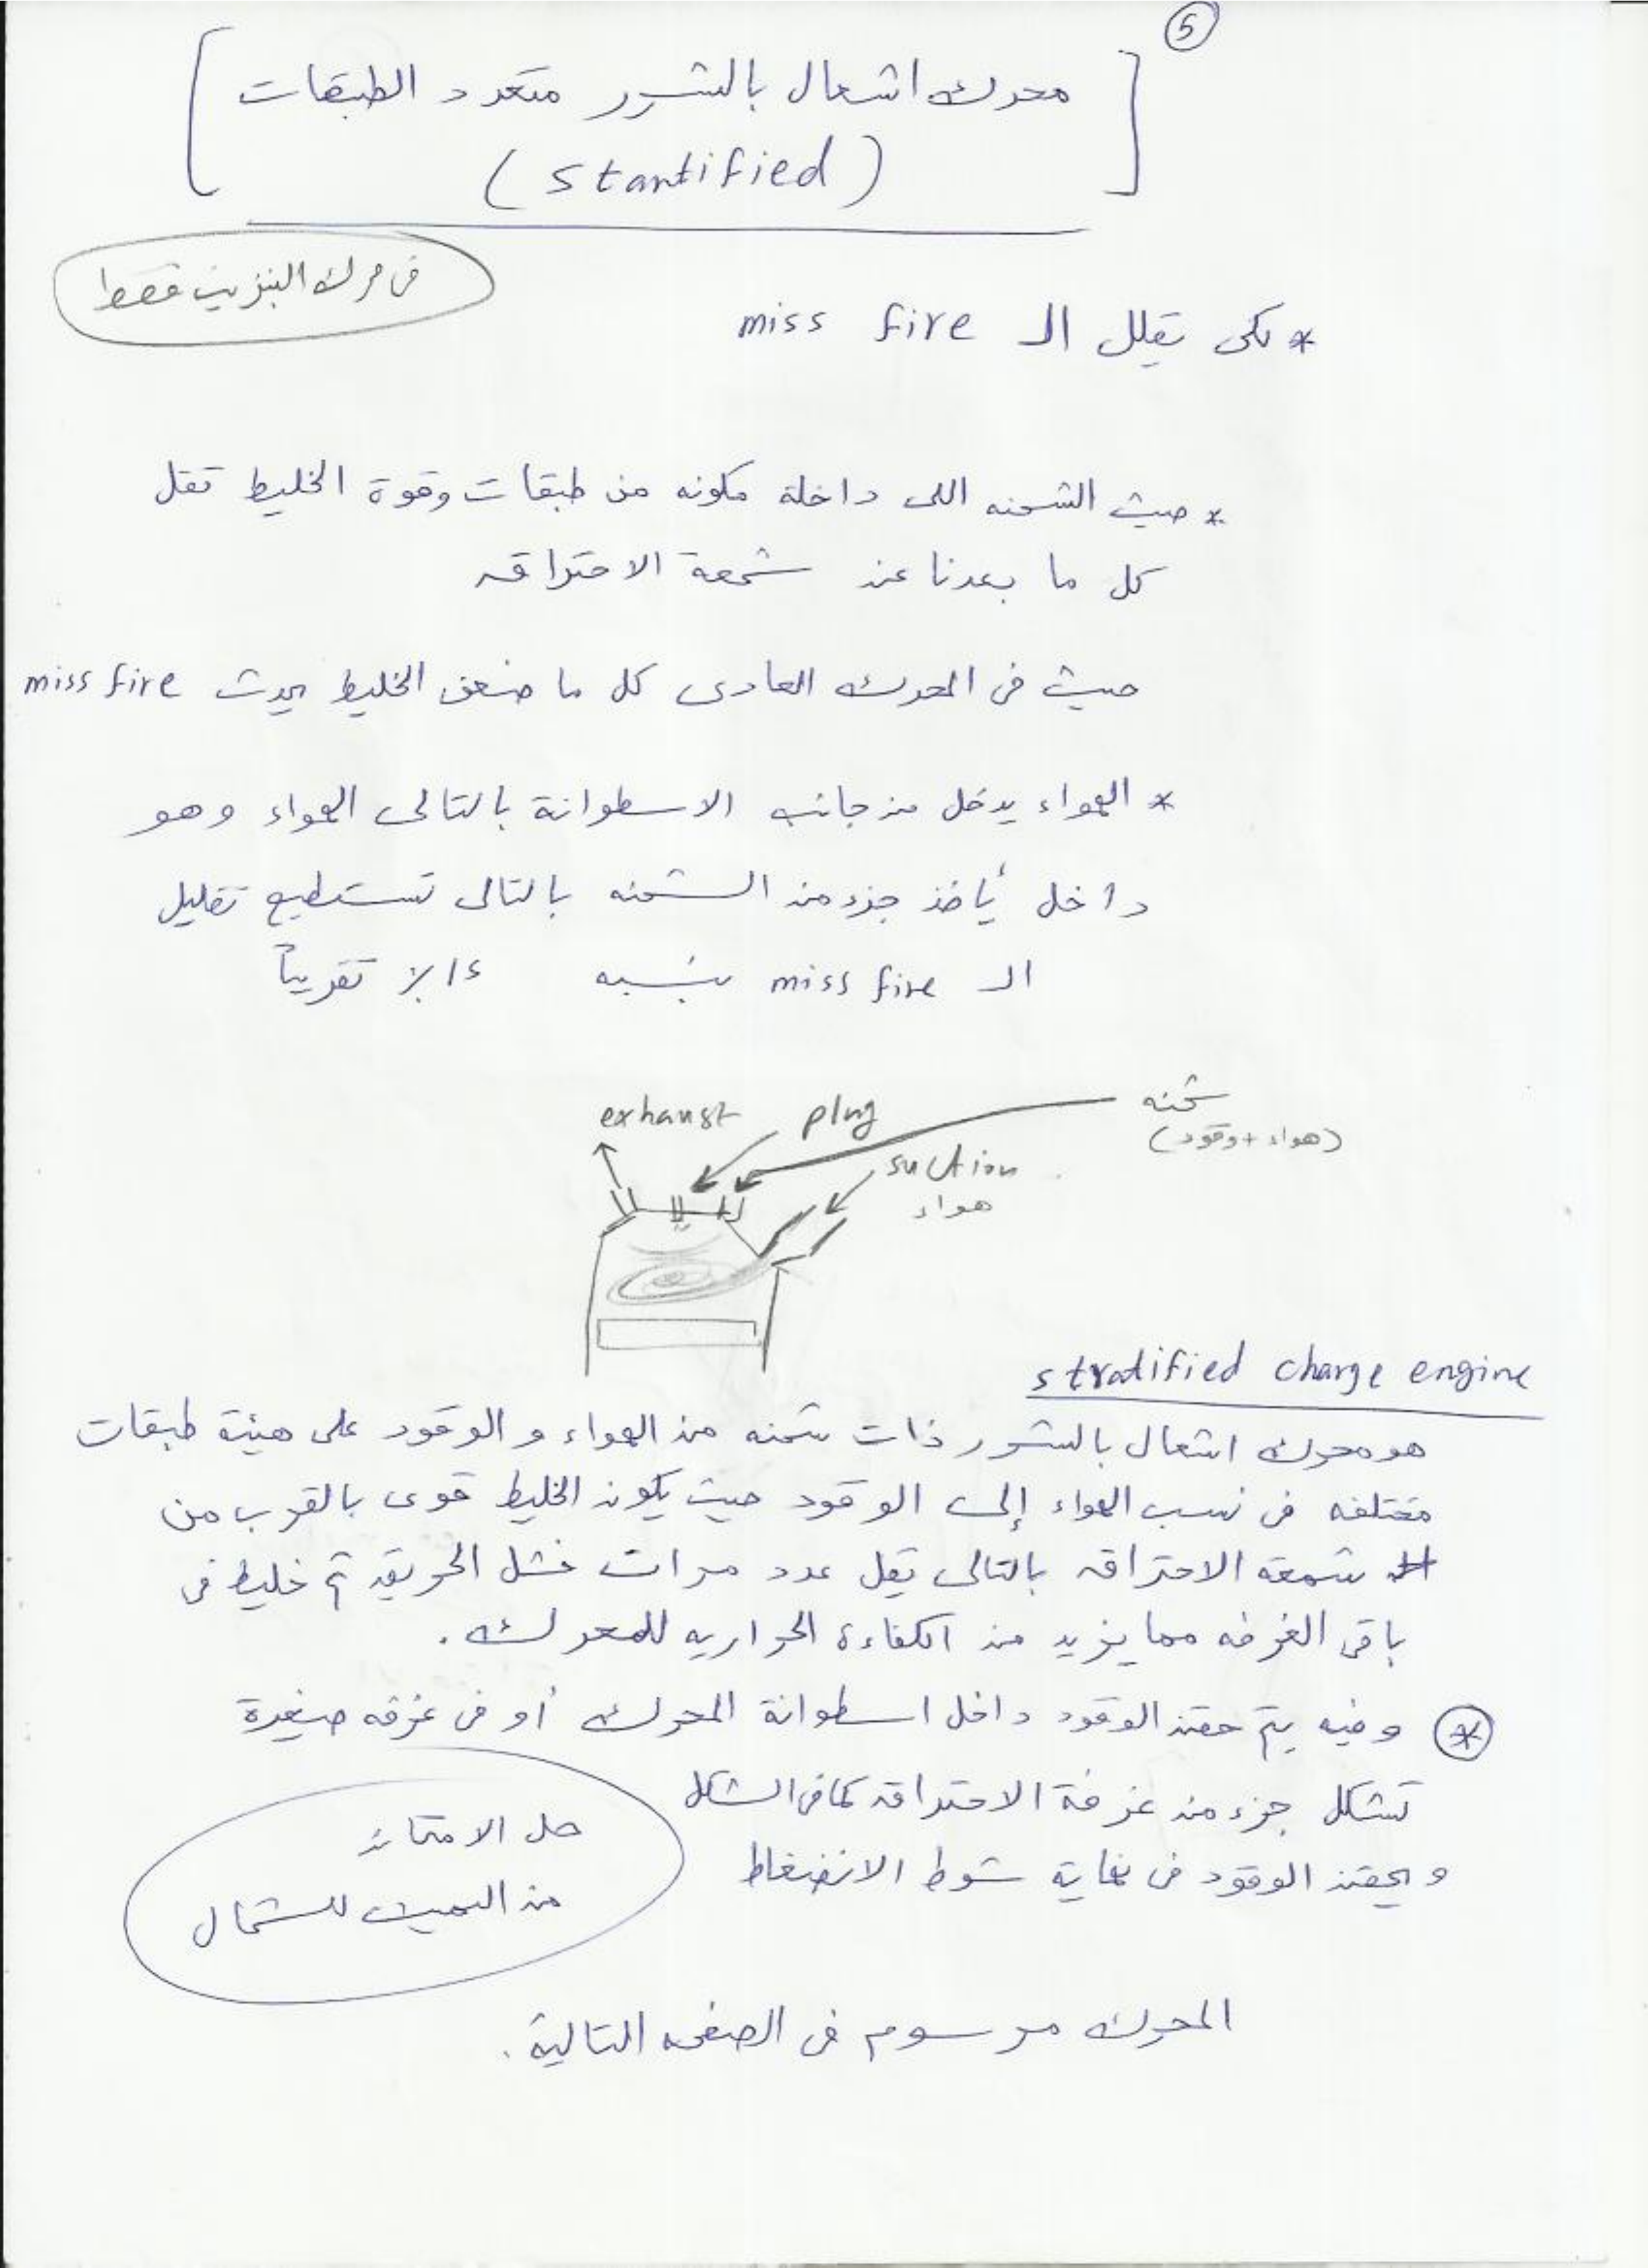 5
محرك اشعال بالشرر متعدد الطبقات
(stantified)
فى محرك البنزين فقط
* لكى تقلل الـ miss fire
* حيث الشحنه اللى داخلة مكونه من طبقات وقوة الخليط تقل
كل ما بعدنا عن شمعة الاحتراق
حيث فى المحرك العادى كل ما ضعف الخليط يحدث miss fire
* الهواء يدخل من جانب الاسطوانة بالتالى الهواء وهو
داخل يأخذ جزء من الشحنه بالتالى تستطيع تقليل
الـ miss fire بنسبه تقريباً
exhaust
plug
شحنه
(هواء + وقود)
suction
هواء
stratified charge engine
هو محرك اشعال بالشرر ذات شحنه من الهواء و الوقود على هيئة طبقات
مختلفه فى نسب الهواء إلى الوقود حيث يكون الخليط قوى بالقرب من
شمعة الاحتراق بالتالى يقل عدد مرات فشل الحريق ثم خليط فى
باقى الغرفه مما يزيد من الكفاءة الحراريه للمحرك.
* وفيه يتم حقن الوقود داخل اسطوانة المحرك أو فى غرفه صغيرة
تشكل جزء من غرفة الاحتراق كما فى الشكل
و يحقن الوقود فى نهاية شوط الانضغاط
حل الامتحان
من اليمين للشمال
المحرك مرسوم فى الصفحه التالية.